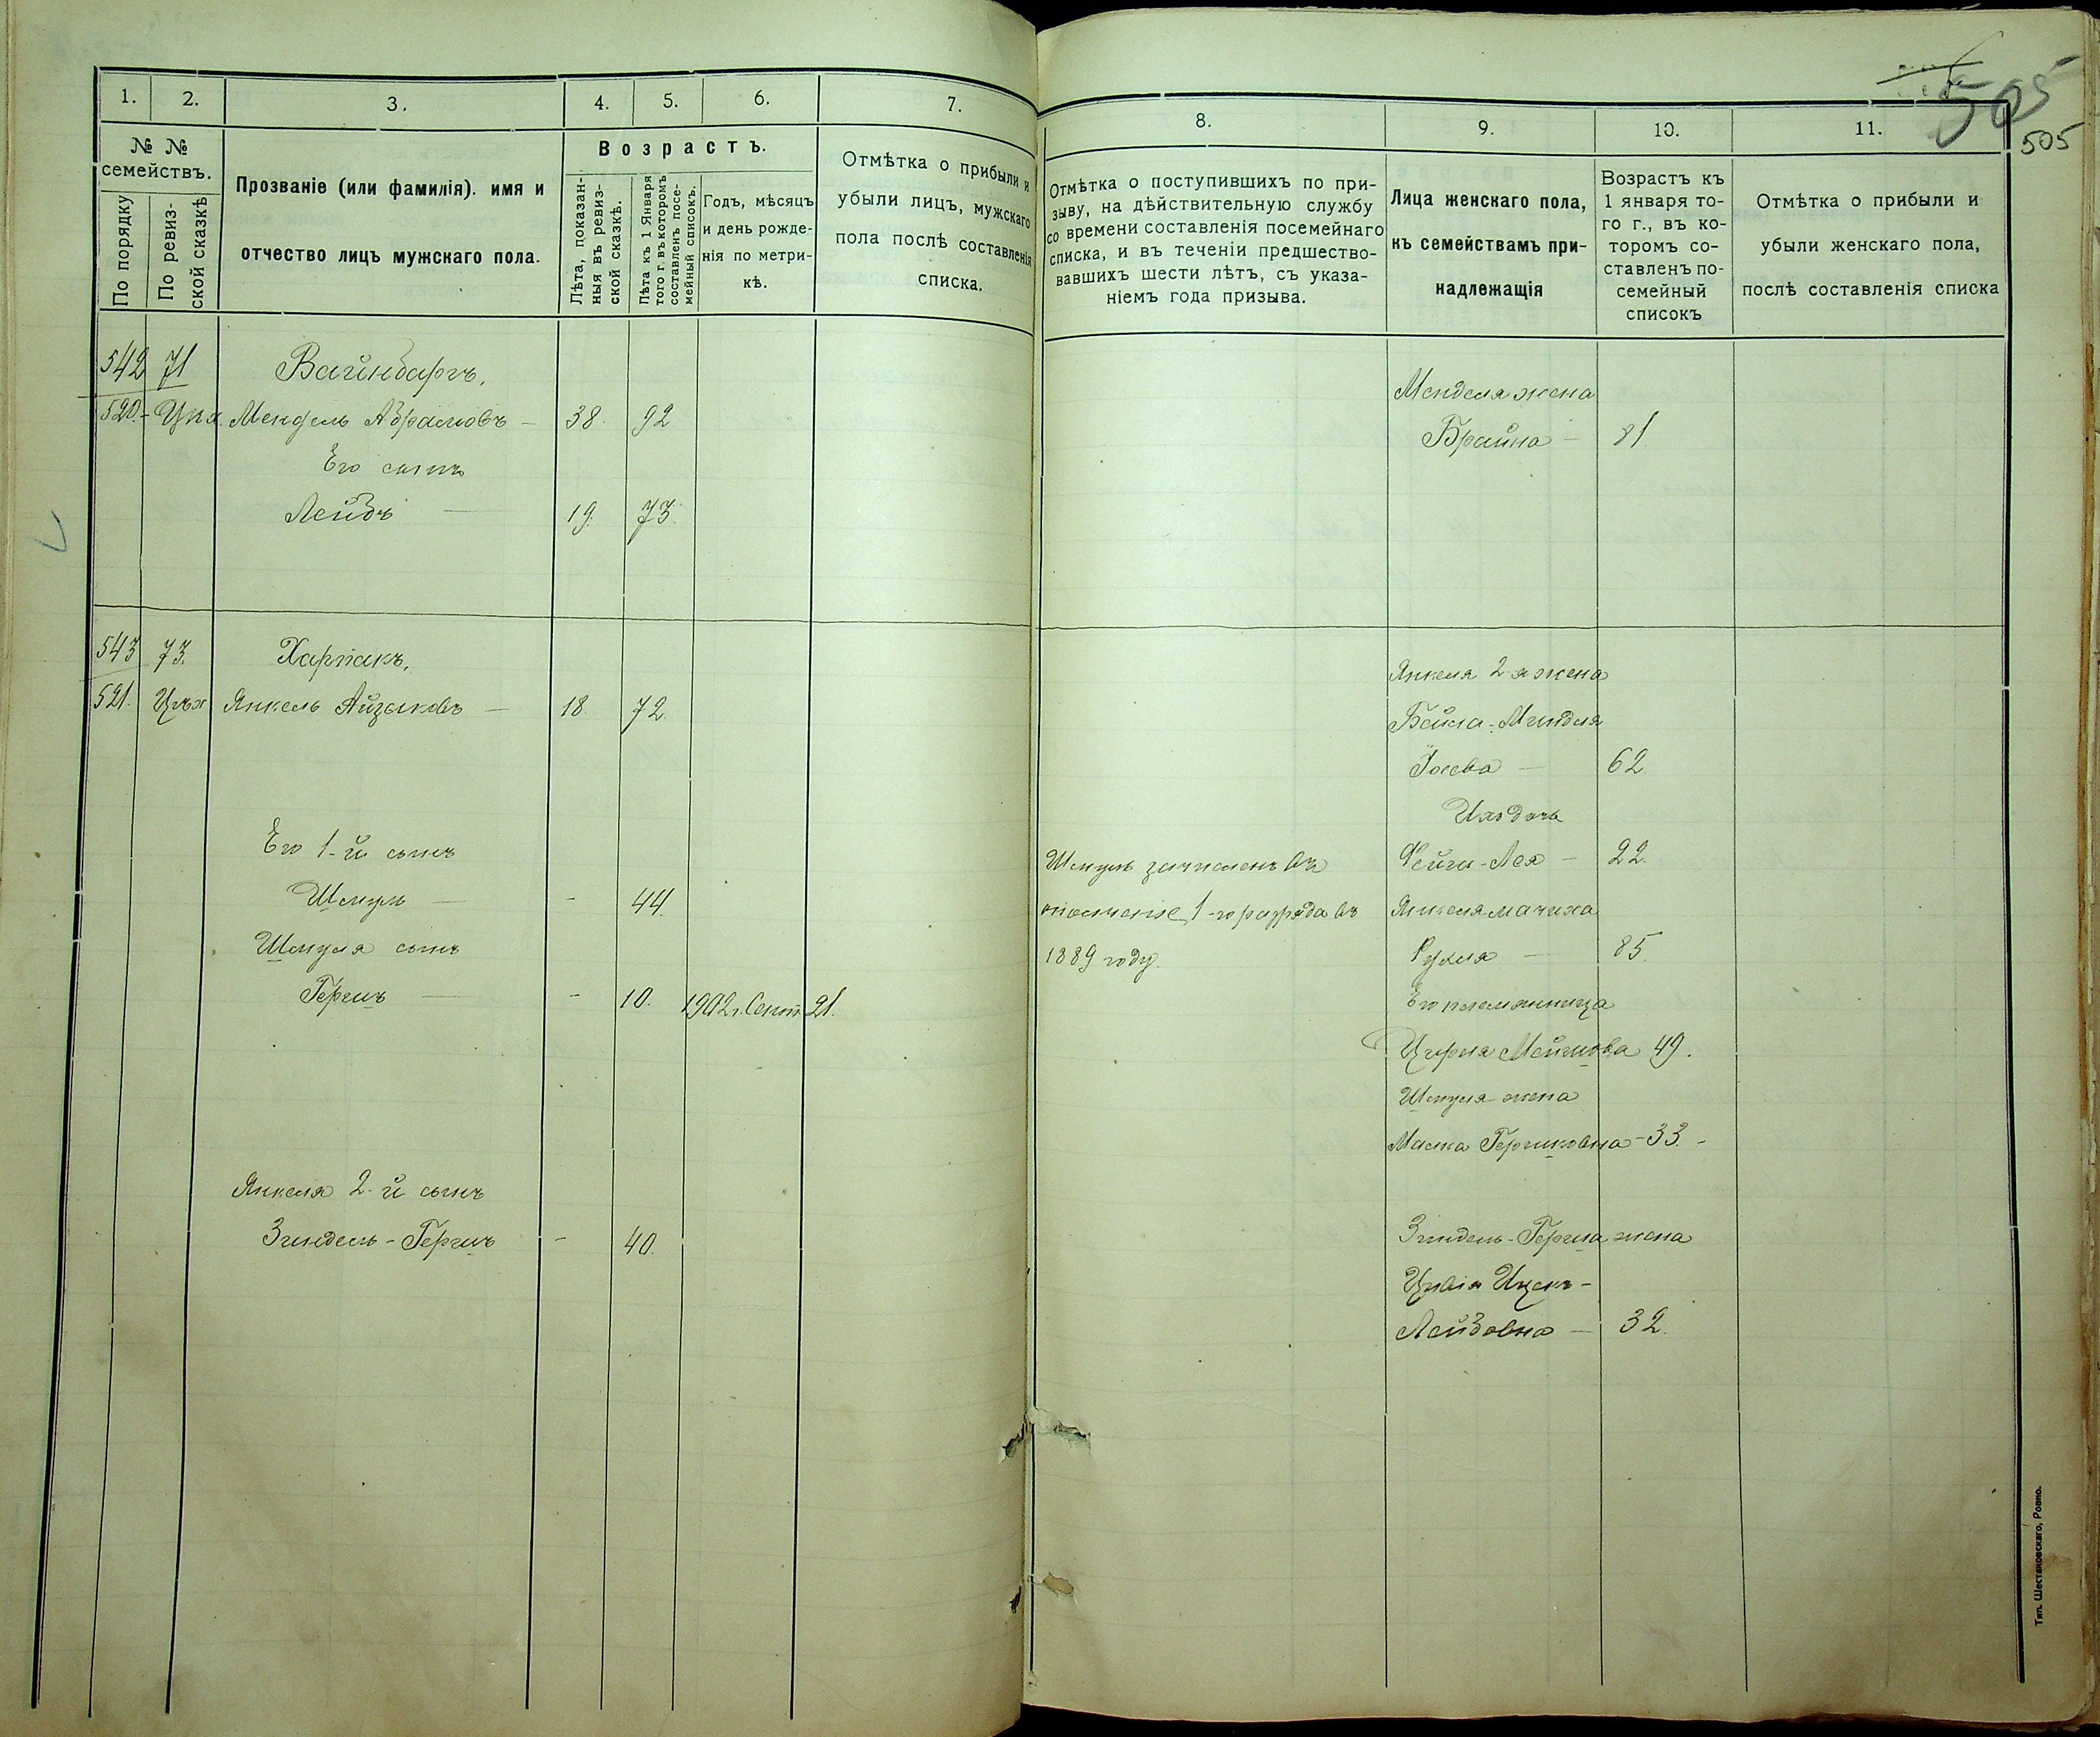 505
505
1.
2.
3.
4.
5.
6.
7.
№ №
семействъ.
По порядку
По ревиз-
ской сказкѣ
Прозваніе (или фамилія). имя и
отчество лицъ мужскаго пола.
Возрастъ.
Лѣта, показан-
ныя въ ревиз-
ской сказкѣ.
Лѣта къ 1 Января
того г. въ которомъ
составленъ посе-
мейный списокъ.
Годъ, мѣсяцъ
и день рожде-
нія по метри-
кѣ.
Отмѣтка о прибыли и
убыли лицъ, мужскаго
пола послѣ составленія
списка.
542 71 Вайнбаргъ.
520.- Мендель Абрамовъ - 38. 92
Его сынъ
Лейбъ - 19. 73.
543 73. Харпакъ.
521. Янкель Айзиковъ - 18. 72.
Его 1-й сынъ
Шмуль - - 44.
Шмуля сынъ
Гершъ - - 10. 1902 г. Сент. 21.
Янкеля 2-й сынъ
Зиндель-Гершъ - 40.
8.
9.
10.
11.
Отмѣтка о поступившихъ по при-
зыву, на дѣйствительную службу
со времени составленія посемейнаго
списка, и въ теченіи предшество-
вавшихъ шести лѣтъ, съ указа-
ніемъ года призыва.
Лица женскаго пола,
къ семействамъ при-
надлежащія
Возрастъ къ
1 января то-
го г., въ ко-
торомъ со-
ставленъ по-
семейный
списокъ
Отмѣтка о прибыли и
убыли женскаго пола,
послѣ составленія списка
Менделя жена
Брайна - 81.
Янкеля 2-я жена
Бейла-Миндля
Іосева - 62.
Ихъ дочь
Шмуль зачисленъ въ Фейга-Лея - 22.
ополченіе 1-го разряда въ Янкеля мачиха
1889 году. Рухля - 85.
Его племянница
Цирля 49.
Шмуля жена
Маска Гершковна - 33. -
Зиндель-Герша жена
Цивія Ицекъ-
Лейбовна - 32.
Тип. Шестаковскаго, Ровно.